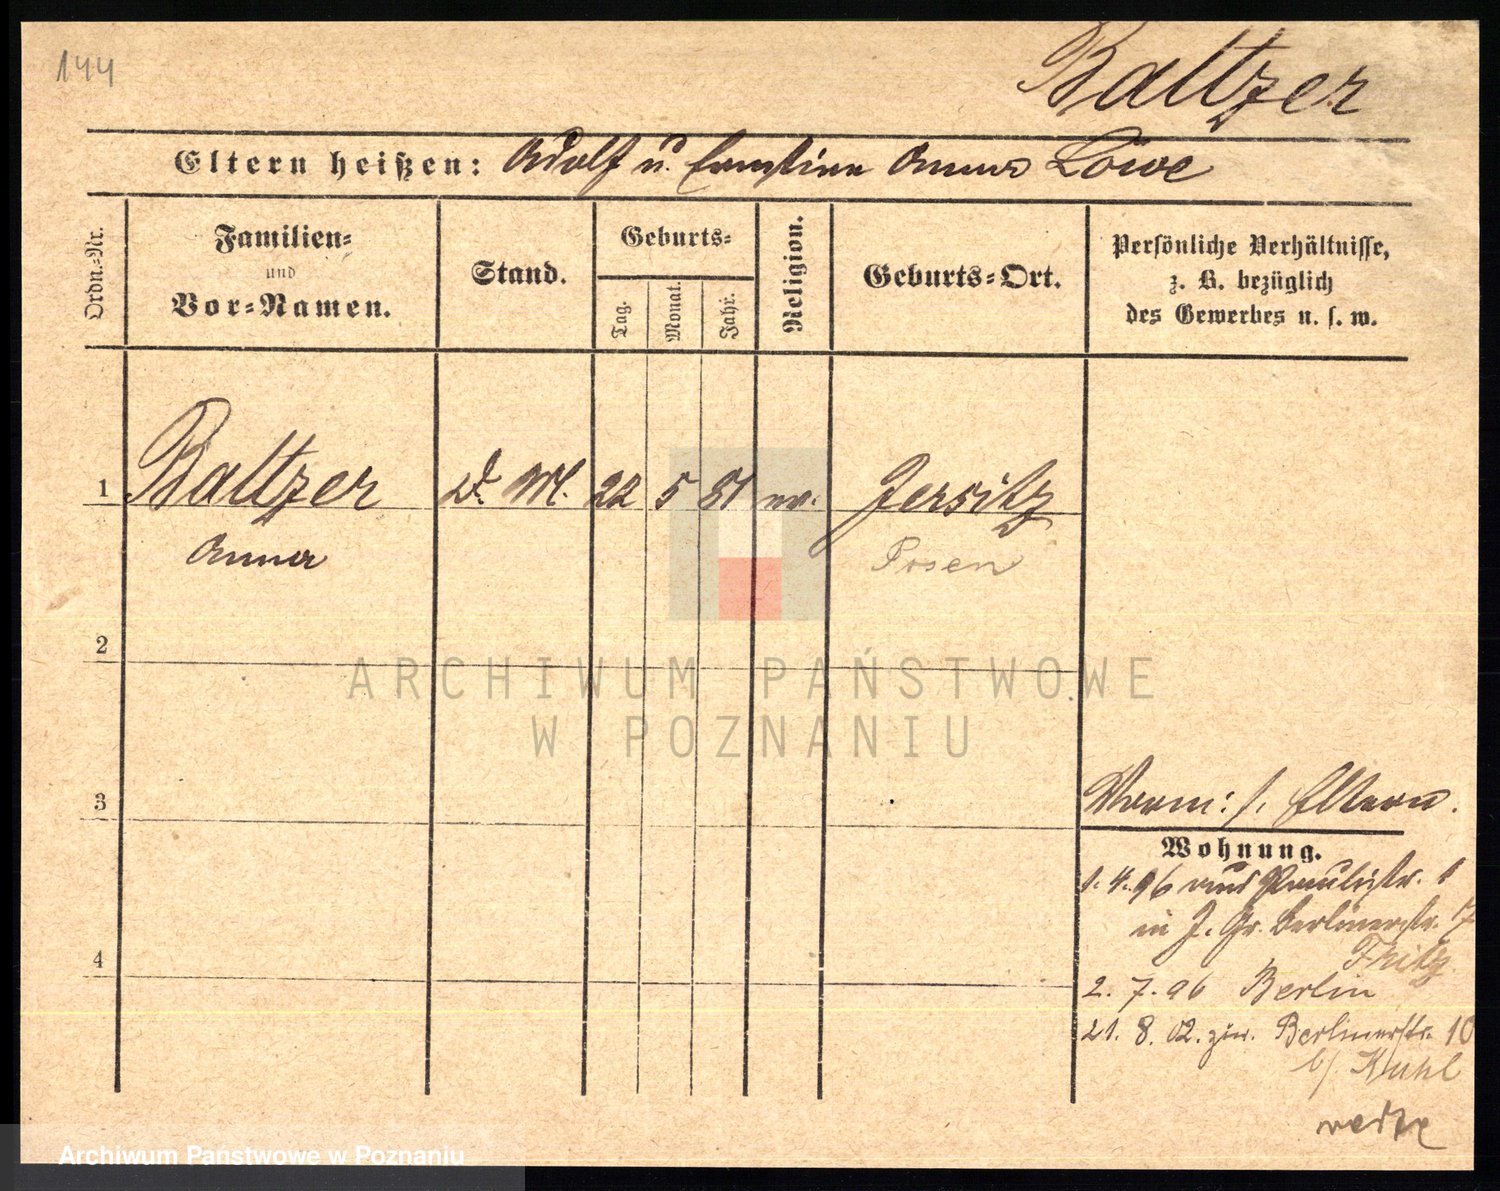 144
Baltzer
Eltern heißen: Adolf u. Ernstine Anna Löwe
Ordn.-Nr.
Familien-
und
Vor-Namen.
Stand.
Geburts-
Tag.
Monat.
Jahr.
Religion.
Geburts-Ort.
Persönliche Verhältnisse,
z. B. bezüglich
des Gewerbes u. s. w.
1 Baltzer 22 5 81 ev. Jersitz
Anna
Posen
2
3
4
Vorm: s. Eltern.
Wohnung.
1.4.96 aus Paulistr. 1
in J. Gr. Berlinerstr. 17
Fritz
2.7.96 Berlin
21.8.02. zur. Berlinerstr. 10
b/ Kuhl
ARCHIWUM PAŃSTWOWE
W POZNANIU
Archiwum Państwowe w Poznaniu